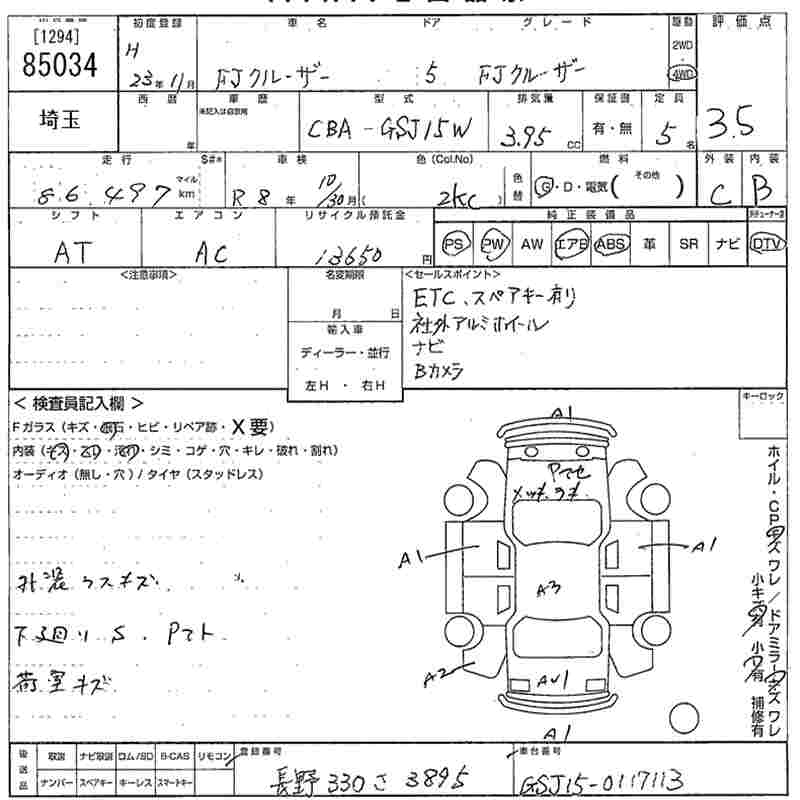 [1294]
85034
初度登録
H
23年11月
車名
FJクルーザー
ドア
5
グレード
FJクルーザー
駆動
2WD
4WD
評価点
3.5
埼玉
西暦
年
車歴
未記入は自家用
型式
CBA-GSJ15W
排気量
3.95 CC
保証書
有・無
定員
5名
走行
マイル
86,497 km
車検
R8年10/30月
色(Col.No)
2KC
色替
燃料
G・D・電気( その他 )
外装
C
内装
B
シフト
AT
エアコン
AC
リサイクル預託金
13650円
純正装備品
PS PW AW エアB ABS 革 SR ナビ DTV
<注意事項>
名変期限
月 日
輸入車
ディーラー・並行
左H・右H
<セールスポイント>
ETC、スペアキー有り
社外アルミホイール
ナビ
Bカメラ
キーロック
<検査員記入欄>
Fガラス(キズ・飛石・ヒビ・リペア跡・X要)
内装(キズ・スレ・汚れ・シミ・コゲ・穴・キレ・破れ・割れ)
オーディオ(無し・穴)/タイヤ(スタッドレス)
外装ウスキズ
下廻りS、Pマト
荷室キズ
A1
Pマセ
メッキ、ラキ
A1
A1
A3
A2
AU1
A1
ホイル・CPキズワレ/ドアミラーキズワレ
小キズ有 小凹有 補修有
後送品
取説 ナビ取説 ロム/SD B-CAS リモコン
ナンバー スペアキー キーレス スマートキー
登録番号
長野 330 さ 3895
車台番号
GSJ15-0117113